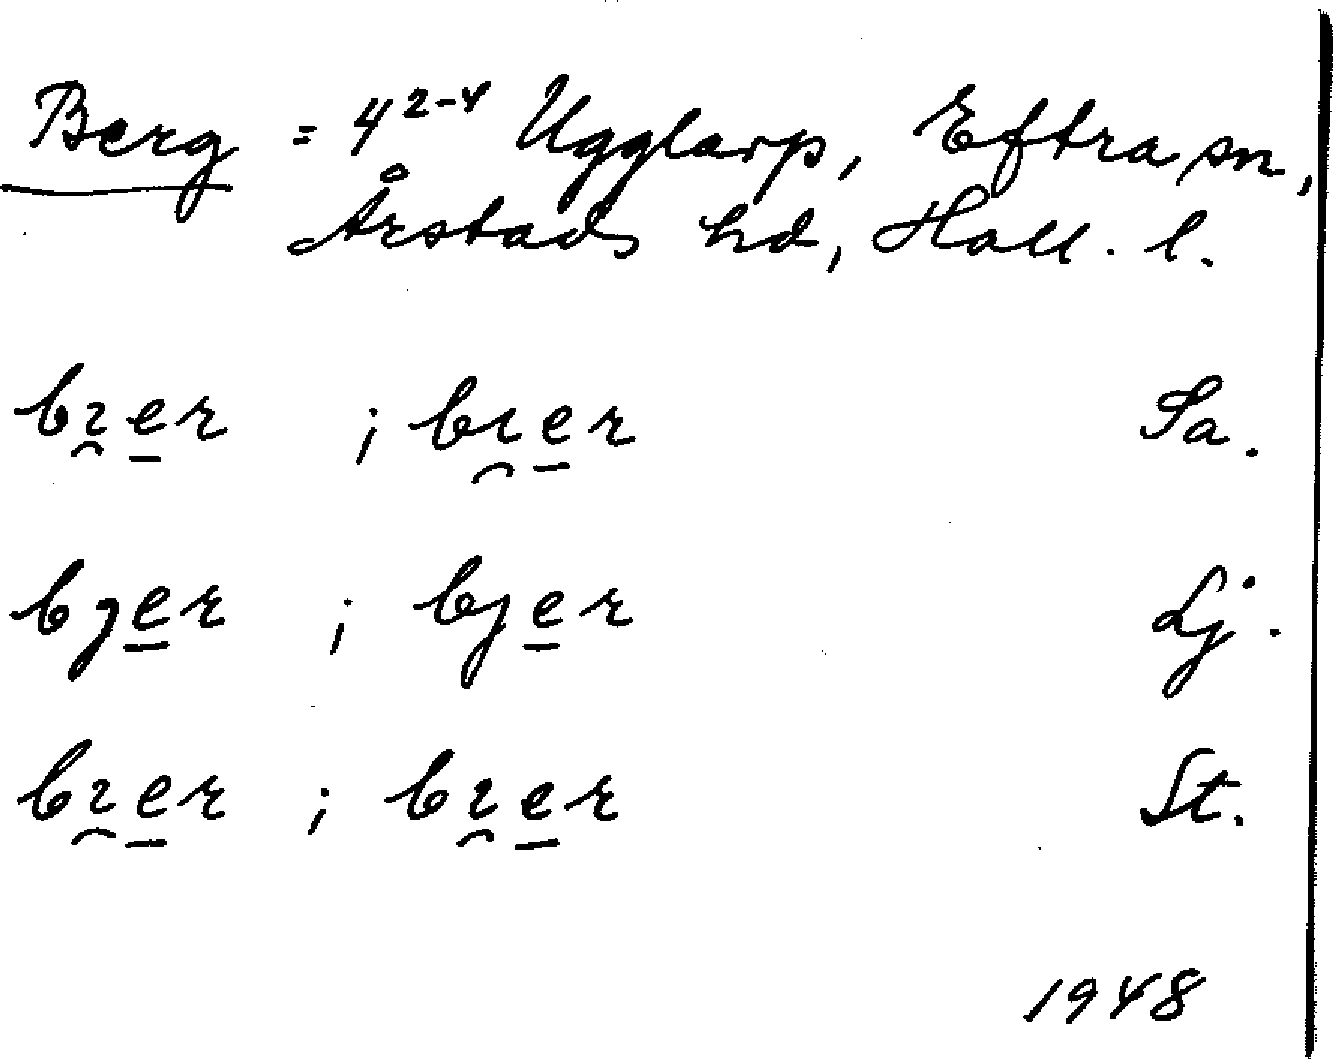 Berg = 4²⁻⁴ Ugglarp, Eftra sn,
Årstads hd, Hall. l.
bɪ̯e̱r ; bɪ̯e̱r Sa.
bje̱r ; bje̱r Lj.
bɪ̯e̱r ; bɪ̯e̱r St.
1948